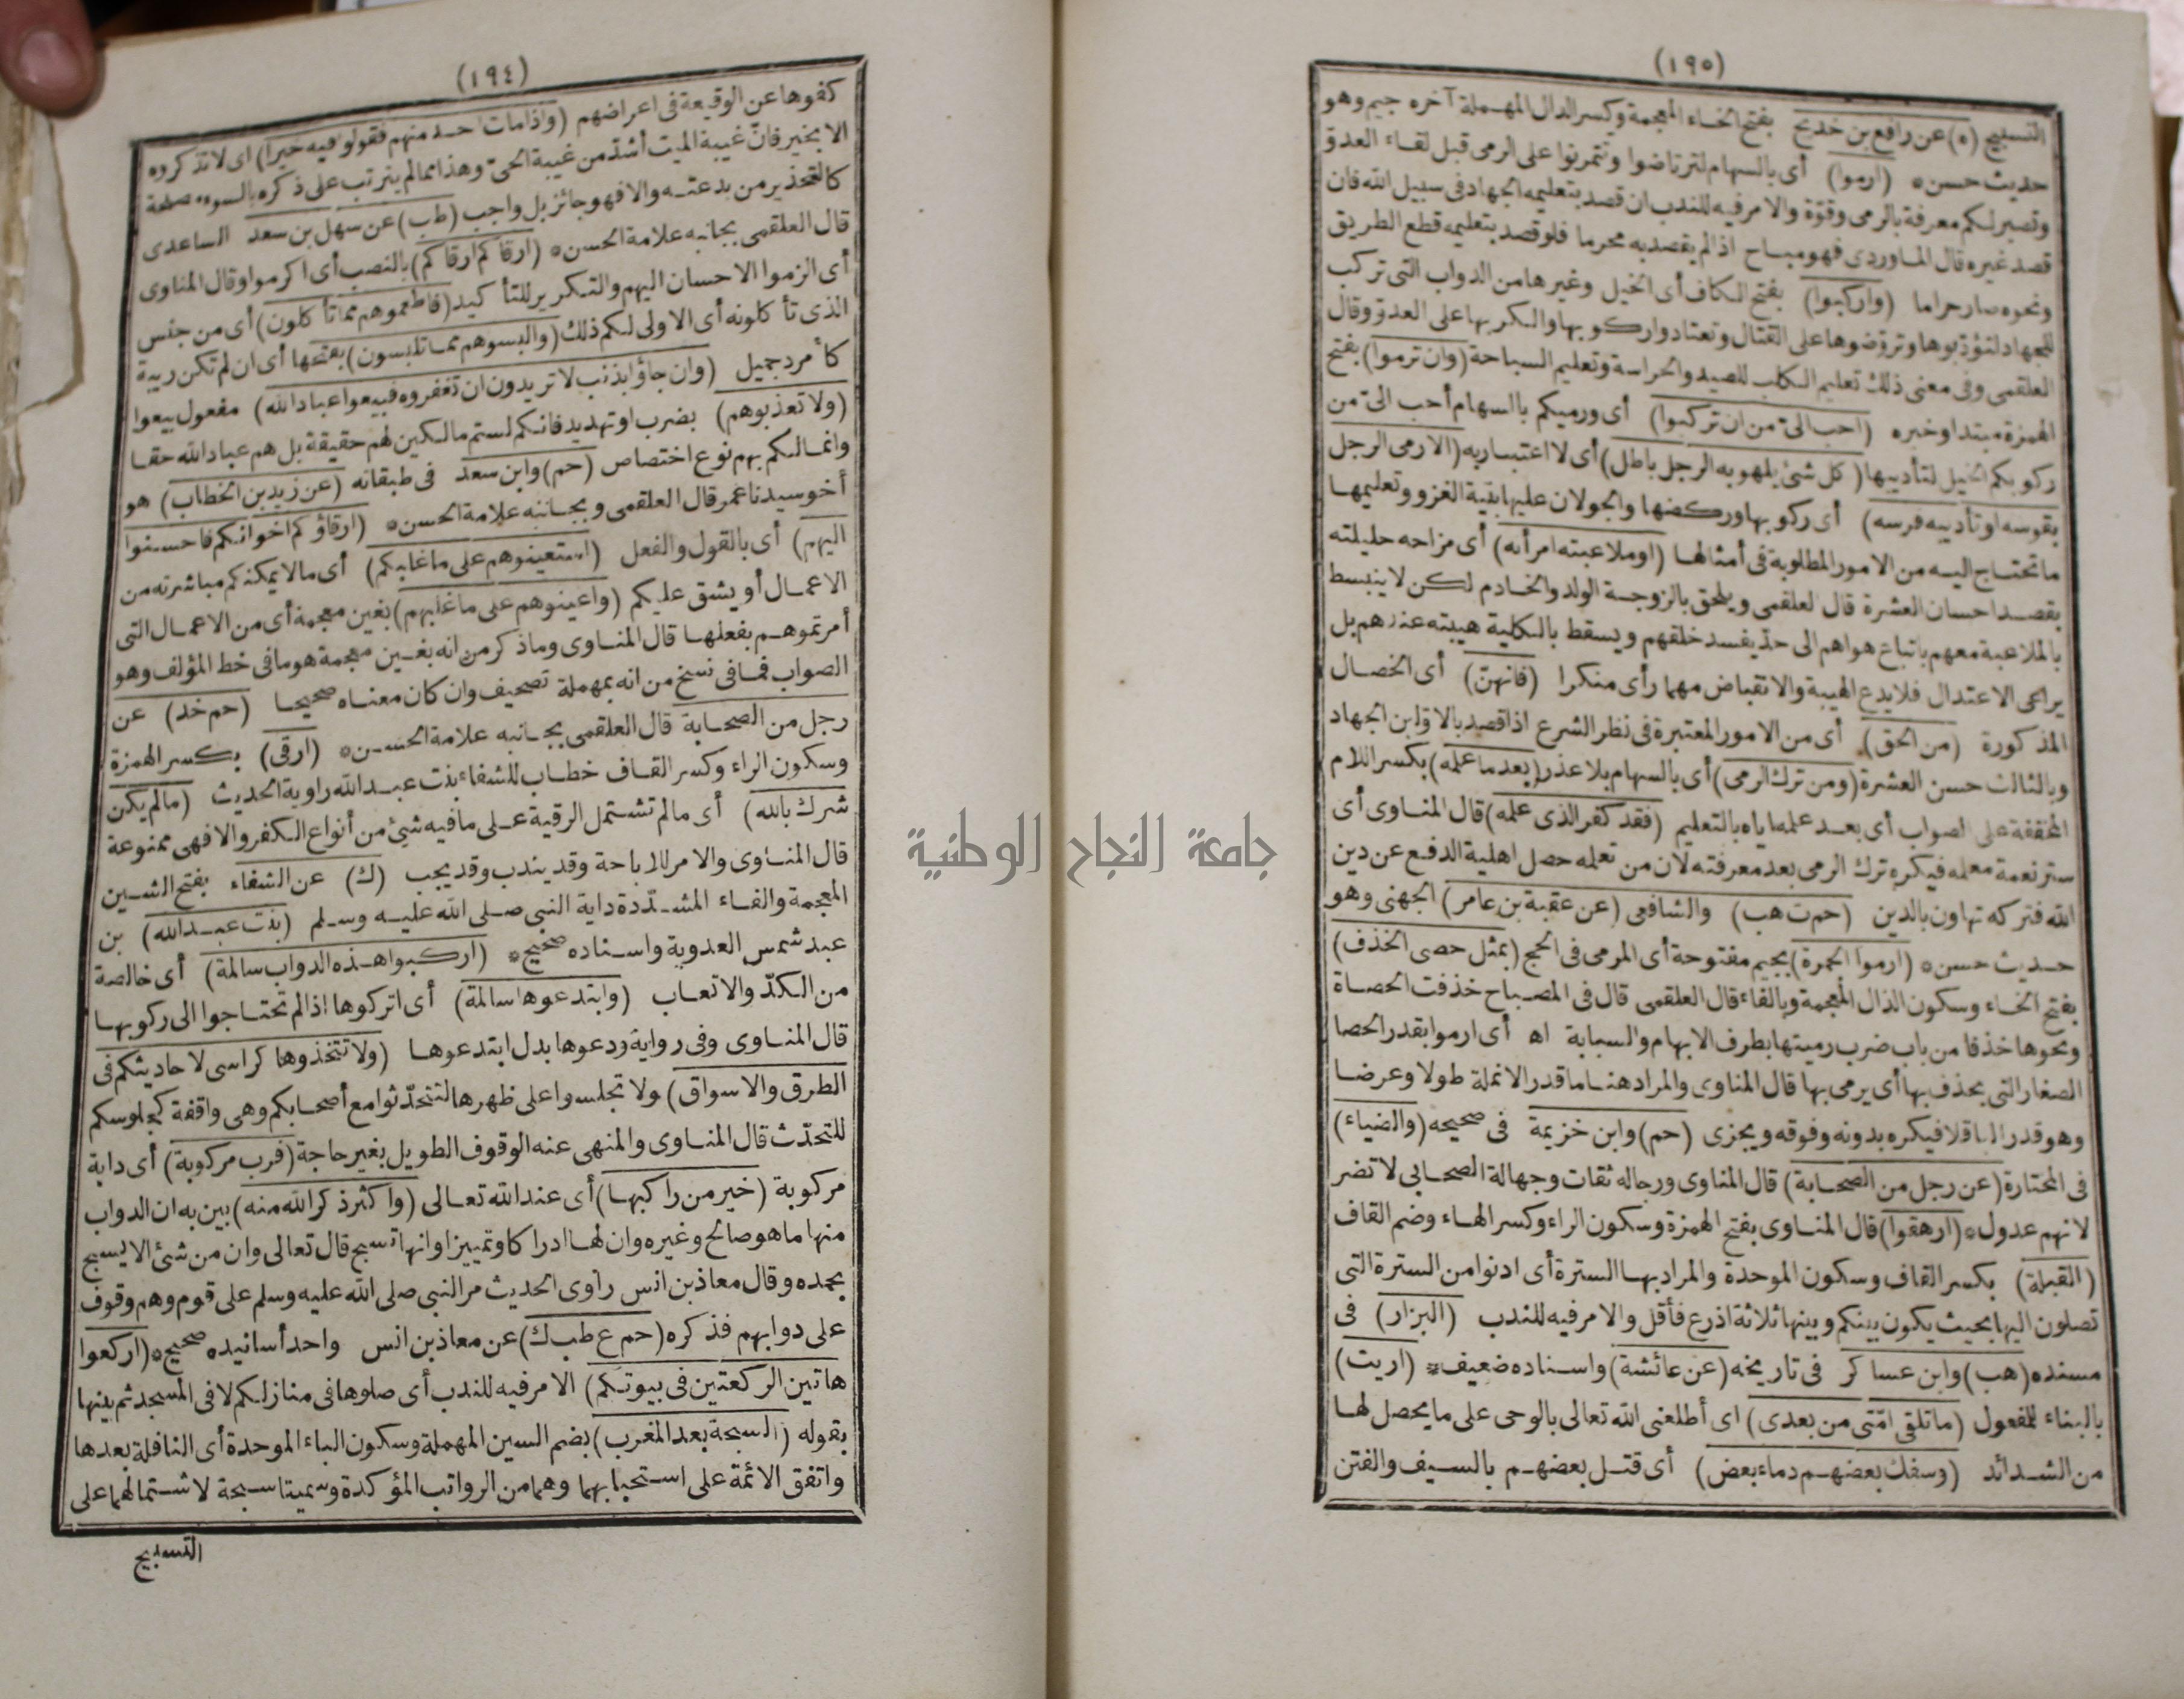 (١٩٤)
كفوها عن الوقيعة فى اعراضهم (واذا مات احد منهم فقولوا فيه خيرا) اى لا تذكروه
الا بخير فان غيبة الميت أشد من غيبة الحى وهذا ما لم يترتب على ذكره بالسوء مصلحة
كالتحذير من بدعته والا فهو جائز بل واجب (طب) عن سهل بن سعد الساعدى
قال العلقمى بجانبه علامة الحسن * (ارقاكم ارقاكم) بالنصب أى اكرموا وقال المناوى
أى الزموا الاحسان اليهم والتكرير للتأكيد (فاطعموهم مما تأكلون) أى من جنس
الذى تأكلونه أى الاولى لكم ذلك (والبسوهم مما تلبسون) بفتحها أى ان لم تكن ريبة
كأمرد جميل (وان جاؤا بذنب لا تريدون ان تغفروه فبيعوا عباد الله) مفعول بيعوا
(ولا تعذبوهم) بضرب او تهديد فانكم لستم مالكين لهم حقيقة بل هم عباد الله حقا
وانما لكم بهم نوع اختصاص (حم) وابن سعد فى طبقاته (عن زيد بن الخطاب) هو
أخو سيدنا عمر قال العلقمى وبجانبه علامة الحسن * (ارقاؤكم اخوانكم فاحسنوا
اليهم) أى بالقول والفعل (استعينوهم على ما غلبكم) أى ما لا يمكنكم مباشرته من
الاعمال أو يشق عليكم (واعينوهم على ما غلبهم) بغين معجمة أى من الاعمال التى
أمرتموهم بفعلها قال المناوى وما ذكر من انه بغين معجمة هو ما فى خط المؤلف وهو
الصواب فما فى نسخ من انه بمهملة تصحيف وان كان معناه صحيحا (حم خد) عن
رجل من الصحابة قال العلقمى بجانبه علامة الحسن * (ارقى) بكسر الهمزة
وسكون الراء وكسر القاف خطاب للشفاء بنت عبد الله راوية الحديث (ما لم يكن
شرك بالله) أى ما لم تشتمل الرقية على ما فيه شئ من أنواع الكفر والا فهى ممنوعة
قال المناوى والامر للاباحة وقد يندب وقد يجب (ك) عن الشفاء بفتح الشين
المعجمة والفاء المشدّدة داية النبى صلى الله عليه وسلم (بنت عبد الله) بن
عبد شمس العدوية واسناده صحيح * (اركبوا هذه الدواب سالمة) أى خالصة
من الكدّ والاتعاب (وابتدعوها سالمة) أى اتركوها اذا لم تحتاجوا الى ركوبها
قال المناوى وفى رواية ودعوها بدل ابتدعوها (ولا تتخذوها كراسى لاحاديثكم فى
الطرق والاسواق) ولا تجلسوا على ظهرها لتتحدّثوا مع أصحابكم وهى واقفة كجلوسكم
للتحدّث قال المناوى والمنهى عنه الوقوف الطويل بغير حاجة (فرب مركوبة) أى دابة
مركوبة (خير من راكبها) أى عند الله تعالى (واكثر ذكرا لله منه) بين به ان الدواب
منها ما هو صالح وغيره وان لها ادراكا وتمييزا وانها تسبح قال تعالى وان من شئ الا يسبح
بحمده وقال معاذ بن انس راوى الحديث مر النبى صلى الله عليه وسلم على قوم وهم وقوف
على دوابهم فذكره (حم ع طب ك) عن معاذ بن انس واحد أسانيده صحيح * (اركعوا
هاتين الركعتين فى بيوتكم) الامر فيه للندب أى صلوها فى منازلكم لا فى المسجد ثم بينها
بقوله (السبحة بعد المغرب) بضم السين المهملة وسكون الباء الموحدة أى النافلة بعدها
واتفق الائمة على استحبابهما وهما من الرواتب المؤكدة وسميتا سبحة لاشتمالهما على
التسبيح
(١٩٥)
التسبيح (ه) عن رافع بن خديج بفتح الخاء المعجمة وكسر الدال المهملة آخره جيم وهو
حديث حسن * (ارموا) أى بالسهام لترتاضوا وتتمرنوا على الرمى قبل لقاء العدوّ
وتصير لكم معرفة بالرمى وقوّة والامر فيه للندب ان قصد بتعليمه الجهاد فى سبيل الله فان
قصد غيره قال الماوردى فهو مباح اذا لم يقصد به محرما فلو قصد بتعليمه قطع الطريق
ونحوه صار حراما (واركبوا) بفتح الكاف أى الخيل وغيرها من الدواب التى تركب
للجهاد لتؤدبوها وتروّضوها على القتال وتعتادوا ركوبها والكر بها على العدوّ وقال
العلقمى وفى معنى ذلك تعليم الكلب للصيد والحراسة وتعليم السباحة (وان ترموا) بفتح
الهمزة مبتدا وخبره (احب الىّ من ان تركبوا) أى ورميكم بالسهام أحب الىّ من
ركوبكم الخيل لتأديبها (كل شئ يلهو به الرجل باطل) أى لا اعتبار به (الا رمى الرجل
بقوسه او تأديبه فرسه) أى ركوبها وركضها والجولان عليها بنية الغزو وتعليمها
ما تحتاج اليه من الامور المطلوبة فى أمثالها (او ملاعبته امرأته) أى مزاحه حليلته
بقصد احسان العشرة قال العلقمى ويلحق بالزوجة الولد والخادم لكن لا ينبسط
بالملاعبة معهم باتباع هواهم الى حدّ يفسد خلقهم ويسقط بالكلية هيبته عندهم بل
يراعى الاعتدال فلا يدع الهيبة والانقباض مهما رأى منكرا (فانهنّ) أى الخصال
المذكورة (من الحق) أى من الامور المعتبرة فى نظر الشرع اذا قصد بالاوّلين الجهاد
وبالثالث حسن العشرة (ومن ترك الرمى) أى بالسهام بلا عذر (بعد ما علمه) بكسر اللام
المخففة على الصواب أى بعد علمه اياه بالتعليم (فقد كفر الذى علمه) قال المناوى أى
ستر نعمة معلمه فيكره ترك الرمى بعد معرفته لان من تعلمه حصل اهلية الدفع عن دين
الله فتركه تهاون بالدين (حم ت هب) والشافعى (عن عقبة بن عامر) الجهنى وهو
حديث حسن * (ارموا الجمرة) بجيم مفتوحة أى المرمى فى الحج (بمثل حصى الخذف)
بفتح الخاء وسكون الذال المعجمة وبالفاء قال العلقمى قال فى المصباح خذفت الحصاة
ونحوها خذفا من باب ضرب رميتها بطرف الابهام والسبابة اه أى ارموا بقدر الحصا
الصغار التى يحذف بها أى يرمى بها قال المناوى والمراد هنا ما قدر الانملة طولا وعرضا
وهو قدر الباقلا فيكره بدونه وفوقه ويجزى (حم) وابن خزيمة فى صحيحه (والضياء)
فى المختارة (عن رجل من الصحابة) قال المناوى ورجاله ثقات وجهالة الصحابى لا تضر
لانهم عدول * (ارهقوا) قال المناوى بفتح الهمزة وسكون الراء وكسر الهاء وضم القاف
(القبلة) بكسر القاف وسكون الموحدة والمراد بها السترة أى ادنوا من السترة التى
تصلون اليها بحيث يكون بينكم وبينها ثلاثة اذرع فأقل والامر فيه للندب (البزار) فى
مسنده (هب) وابن عساكر فى تاريخه (عن عائشة) واسناده ضعيف * (اريت)
بالبناء للمفعول (ما تلقى امّتى من بعدى) اى أطلعنى الله تعالى بالوحى على ما يحصل لها
من الشدائد (وسفك بعضهم دماء بعض) أى قتل بعضهم بالسيف والفتن
جامعة النجاح الوطنية